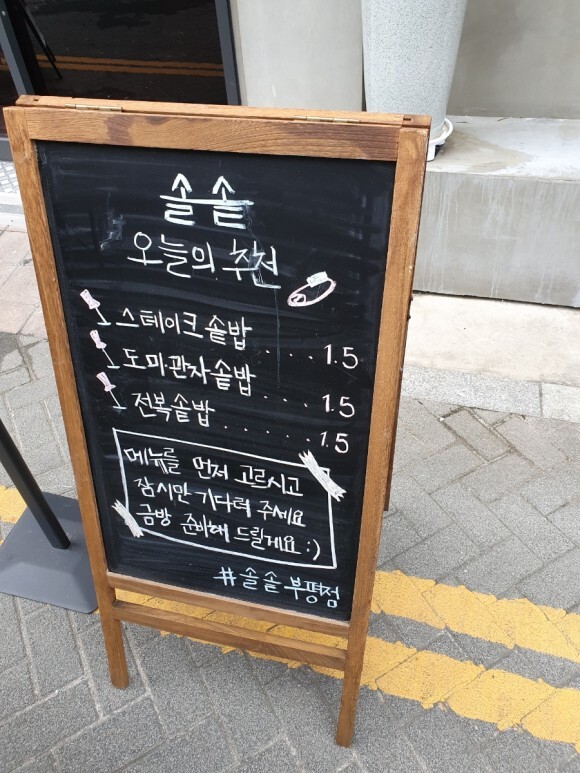 솔솥
오늘의 추천
스테이크솥밥 .... 1.5
도미관자솥밥 .... 1.5
전복솥밥 ..... 1.5
메뉴를 먼저 고르시고
잠시만 기다려 주세요
금방 준비해 드릴게요 :)
#솔솥 부평점